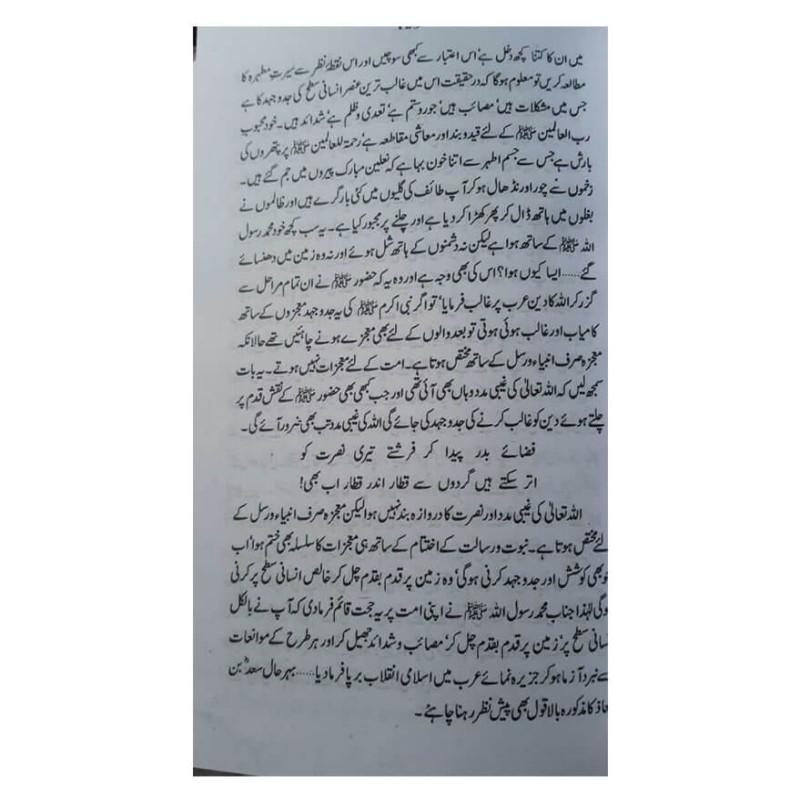 میں ان کا کتنا کچھ دخل ہے‘ اس اعتبار سے کبھی سوچیں اور اس نقطۂ نظر سے سیرتِ مطہرہ کا
مطالعہ کریں تو معلوم ہوگا کہ درحقیقت اس میں غالب ترین عنصر انسانی سطح کی جدوجہد کا ہے
جس میں مشکلات ہیں‘ مصائب ہیں‘ جور و ستم ہے‘ تعدی و ظلم ہے‘ شدائد ہیں۔ خود محبوب
رب العالمین ﷺ کے لئے قید و بند اور معاشی مقاطعہ ہے‘ رحمۃ للعالمین ﷺ پر پتھروں کی
بارش ہے جس سے جسم اطہر سے اتنا خون بہا ہے کہ نعلین مبارک پیروں میں جم گئے ہیں۔
زخموں سے چور اور نڈھال ہو کر آپ طائف کی گلیوں میں کئی بار گرے ہیں اور ظالموں نے
بغلوں میں ہاتھ ڈال کر پھر کھڑا کر دیا ہے اور چلنے پر مجبور کیا ہے۔ یہ سب کچھ خود محمد رسول
اللہ ﷺ کے ساتھ ہوا ہے لیکن نہ دشمنوں کے ہاتھ شل ہوئے اور نہ وہ زمین میں دھنسائے
گئے...... ایسا کیوں ہوا؟ اس کی بھی وجہ ہے اور وہ یہ کہ حضور ﷺ نے ان تمام مراحل سے
گزر کر اللہ کا دین عرب پر غالب فرمایا‘ تو اگر نبی اکرم ﷺ کی یہ جدوجہد معجزوں کے ساتھ
کامیاب اور غالب ہوئی ہوتی تو بعد والوں کے لئے بھی معجزے ہونے چاہئیں تھے حالانکہ
معجزہ صرف انبیاء و رسل کے ساتھ مختص ہوتا ہے۔ امت کے لئے معجزات نہیں ہوتے۔ یہ بات
سمجھ لیں کہ اللہ تعالیٰ کی غیبی مدد وہاں بھی آئی تھی اور جب کبھی بھی حضور ﷺ کے نقش قدم پر
چلتے ہوئے دین کو غالب کرنے کی جدوجہد کی جائے گی اللہ کی غیبی مدد تب بھی ضرور آئے گی۔
فضائے بدر پیدا کر فرشتے تیری نصرت کو
اتر سکتے ہیں گردوں سے قطار اندر قطار اب بھی!
اللہ تعالیٰ کی غیبی مدد اور نصرت کا دروازہ بند نہیں ہوا لیکن معجزہ صرف انبیاء و رسل کے
لئے مختص ہوتا ہے۔ نبوت و رسالت کے اختتام کے ساتھ ہی معجزات کا سلسلہ بھی ختم ہوا‘ اب
جو بھی کوشش اور جدوجہد کرنی ہوگی‘ وہ زمین پر قدم بقدم چل کر خالص انسانی سطح پر کرنی
ہوگی لہٰذا جناب محمد رسول اللہ ﷺ نے اپنی امت پر یہ حجت قائم فرما دی کہ آپ نے بالکل
انسانی سطح پر‘ زمین پر قدم بقدم چل کر‘ مصائب و شدائد جھیل کر اور ہر طرح کے موانعات
سے نبرد آزما ہو کر جزیرہ نمائے عرب میں اسلامی انقلاب برپا فرما دیا...... بہرحال سعدؓ بن
معاذ کا مذکورہ بالا قول بھی پیش نظر رہنا چاہئے۔